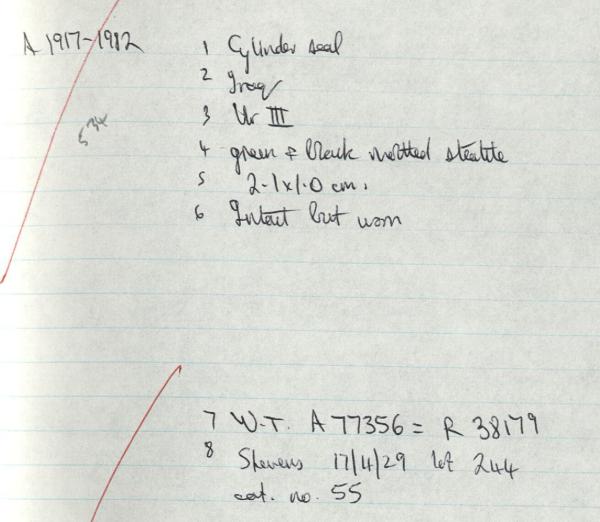 A 1917-1982
1 Cylinder seal
2 Iraq
3 Ur III
534
4 green & black mottled steatite
5 2.1x1.0 cm.
6 Intact but worn
7 W.T. A 77356 = R 38179
8 Stevens 17/4/29 lot 244
cat. no. 55